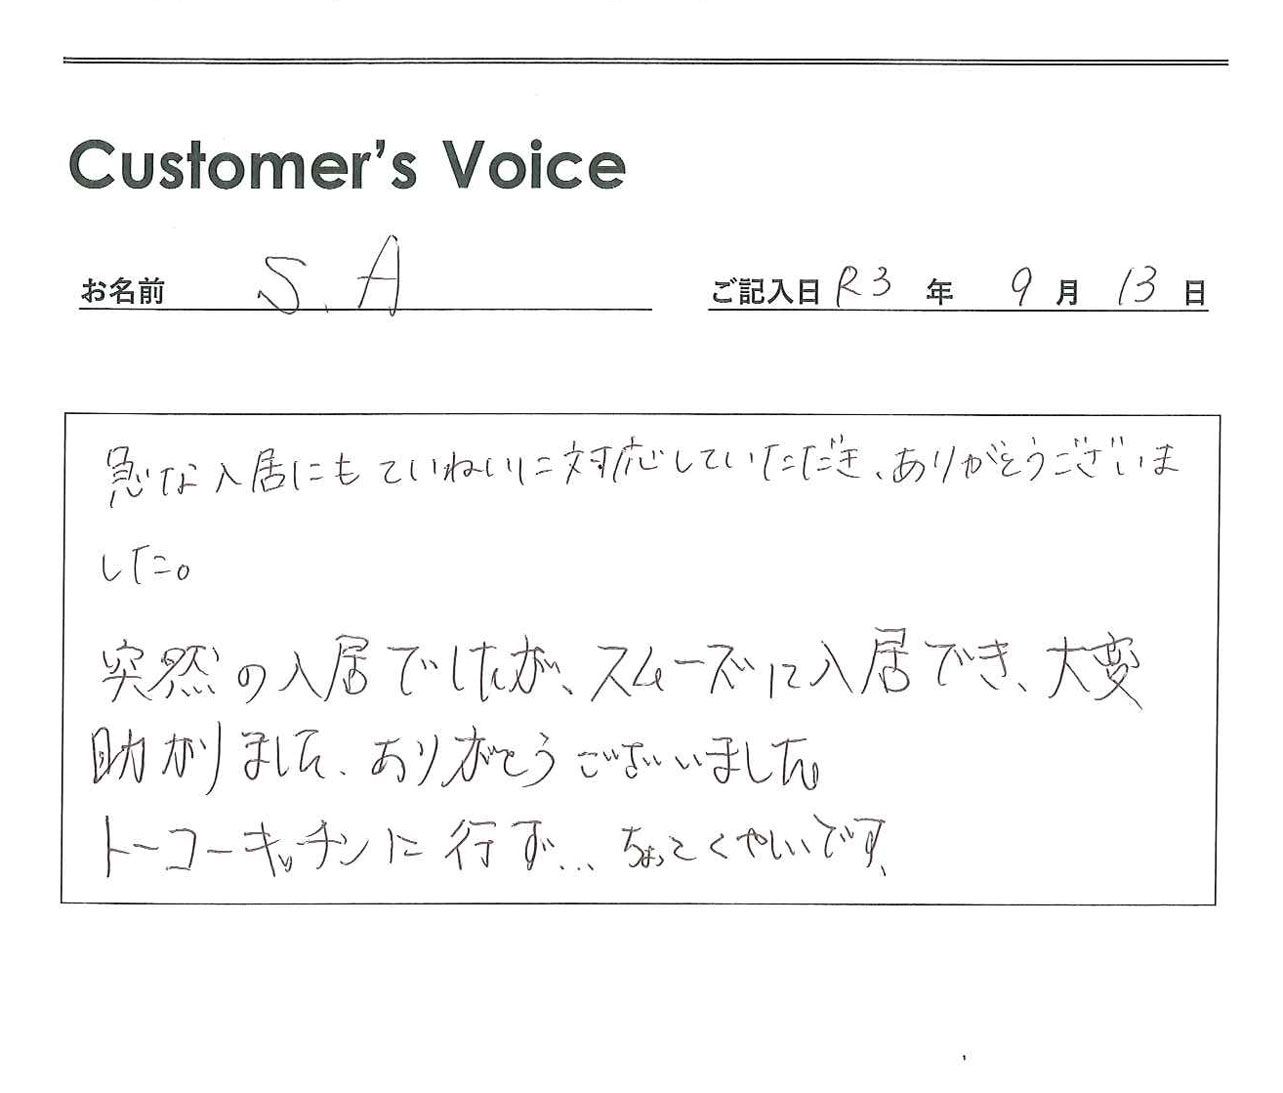 Customer's Voice
お名前 S.A ご記入日 R3年 9月 13日
急な入居にもていねいに対応していただき、ありがとうございま
した。
突然の入居でしたが、スムーズに入居でき、大変
助かりました、ありがとうございました。
トーコーキッチンに行けず... ちょっとくやしいです。